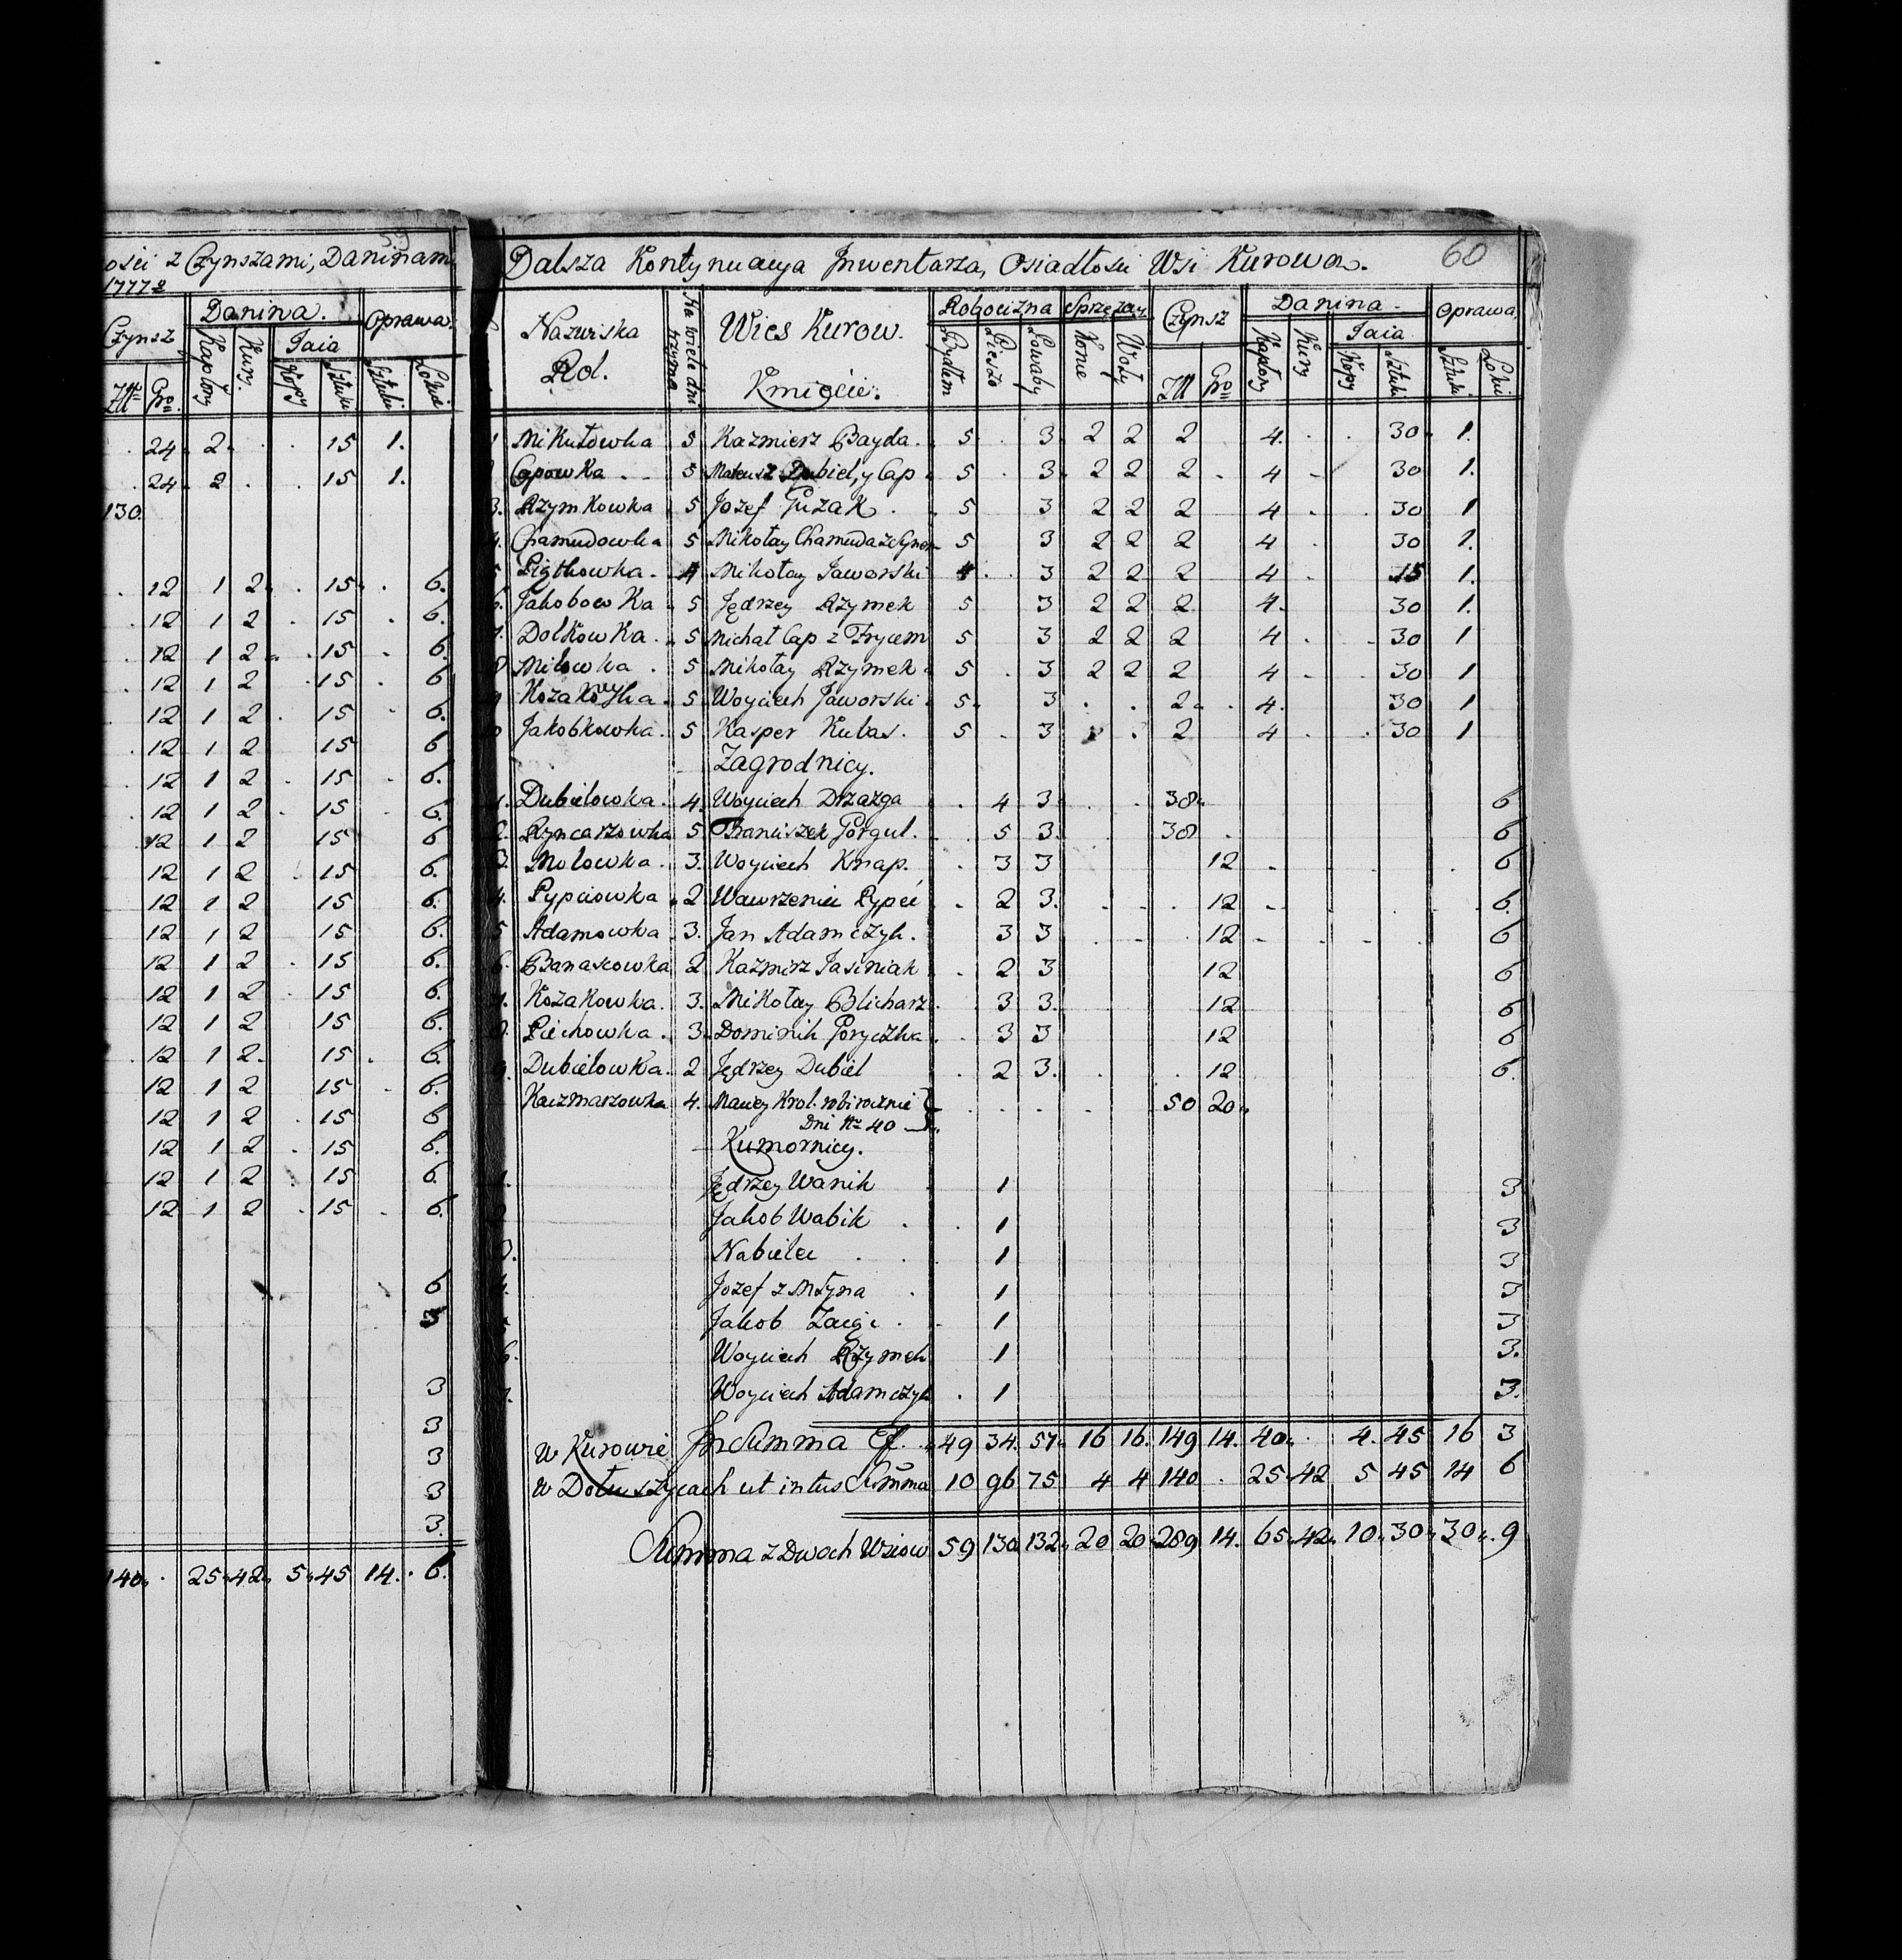 59
ości z Czynszami, Daninami
1777 2
Czynsz Danina. Oprawa.
Kapłony Kury. Jaia
Złł Gro Kopy Sztuki Sztuki Łokcie
24. 2. . . 15 1.
24. 2 . . 15 1.
130.
12 1 2 . 15 . 6.
12 1 2 . 15 . 6.
12 1 2 . 15 . 6
12 1 2 . 15 . 6
12 1 2 . 15 . 6.
12 1 2 15 6
12 1 2 . 15 . 6.
12 1 2 . 15 . 6.
12 1 2 15 6
12 1 2 . 15 6.
12 1 2 15 6.
12 1 2 15 6.
12 1 2 . 15 6.
12 1 2 . 15 6.
12 1 2 15 6.
12 1 2. 15 . 6.
12 1 2 15 . 6.
12 1 2 . 15 6
12 1 2 . 15 6.
12 1 2 . 15 6.
12 1 2 . 15 . 6.
6
3
3
3
3
3
3.
140. . 25. 42. 5. 45 14. . 6.
60
Dalsza Kontynuacya Inwentarza, Osiadłości Wsi Kurowa.
Nazwiska Rol. Na wiele dni trzyma Wies Kurow. Robocizna Sprzężay Czynsz Danina. Oprawa,
Kmiecie. Bydłem Pieszo Powaby Konie Woły Złł Gro Kapłony Kury Jaia Kopy Sztuki Sztuki. Łokci
1 Mikułowka 5 Kazmierz Bayda. 5 . 3. 2 2 2 4. . . 30 1.
Capowka . 5 Mateusz Dubiel, y Cap 5 . 3. 2 2 2 . 4 30 1.
3. Rzymkowka 5 Jozef Guzak . 5 3 2 2 2 4 . . 30 1
4. Chamudowka 5 Mikołay Chamuda z Synem 5 3 2 2 2 4 . 30 1.
5 Piątkowka. 4 Mikołay Jaworski 4 . 3 2 2 2 4 . 15 1.
6. Jakobowka 5 Jędrzey Rzymek 5 3 2 2 2 4. 30 1.
7. Dolkowka. 5 Michał Cap z Frycem 5 3 2 2 2 4 . . 30 1
8 Milowka . 5 Mikołay Rzymek 5 . 3 2 2 2 4 . . 30 1
9 Kozakowska. 5. Woyciech Jaworski 5. 3 . . 2. . 4. 30 1
10 Jakobkowka. 5 Kasper Kubas. 5 . 3 . . 2 4 . . 30 1
Zagrodnicy.
1. Dubielowka. 4. Woyciech Drzazga . 4 3 . . 38. 6
2. Ryncarzowka 5 Franciszek Gorgul. . 5 3. 38 . 6
3. Molowka. 3. Woyciech Knap. . 3 3 12 . . . . 6
4. Pypciowka 2 Wawrzeniec Pypeć . 2 3. . . . 12 . . . 6.
5 Adamowka 3. Jan Adamczyk. 3 3 . . . 12 . . . . 6
6. Banasiowka 2 Kazmirz Jasiniak . 2 3 12 6
7. Kozakowka. 3. Mikołay Blicharz. . 3 3. 12 6
8. Piechowka. 3. Dominik Goryczka . 3 3 12 6
9. Dubielowka. 2 Jędrzey Dubiel . 2 3. . . 12 6.
Kaczmarzowka 4. Maciey Krol. robi rocznie . . . . 50 20.
Dni Nro 40
Kumornicy.
1. Jędrzey Wanik 1 3
2 Jakob Wabik . . 1 3
3. Nabielec . . 1 3
4. Jozef z Młyna . 1 3
5 Jakob . . 1 3
6. Woyciech Rzymek 1 3.
7. Woyciech Adamczyk . 1 3.
w Kurowie In Summa 49 34. 57. 16 16. 149 14. 40. . 4. 45 16 3
w Dołuszycach ut intus Summa 10 96 75 4 4 140 . 25. 42 5 45 14 6
Summa z Dwoch Wsiow 59 130 132. 20 20. 289 14. 65. 42. 10. 30. 30. 9